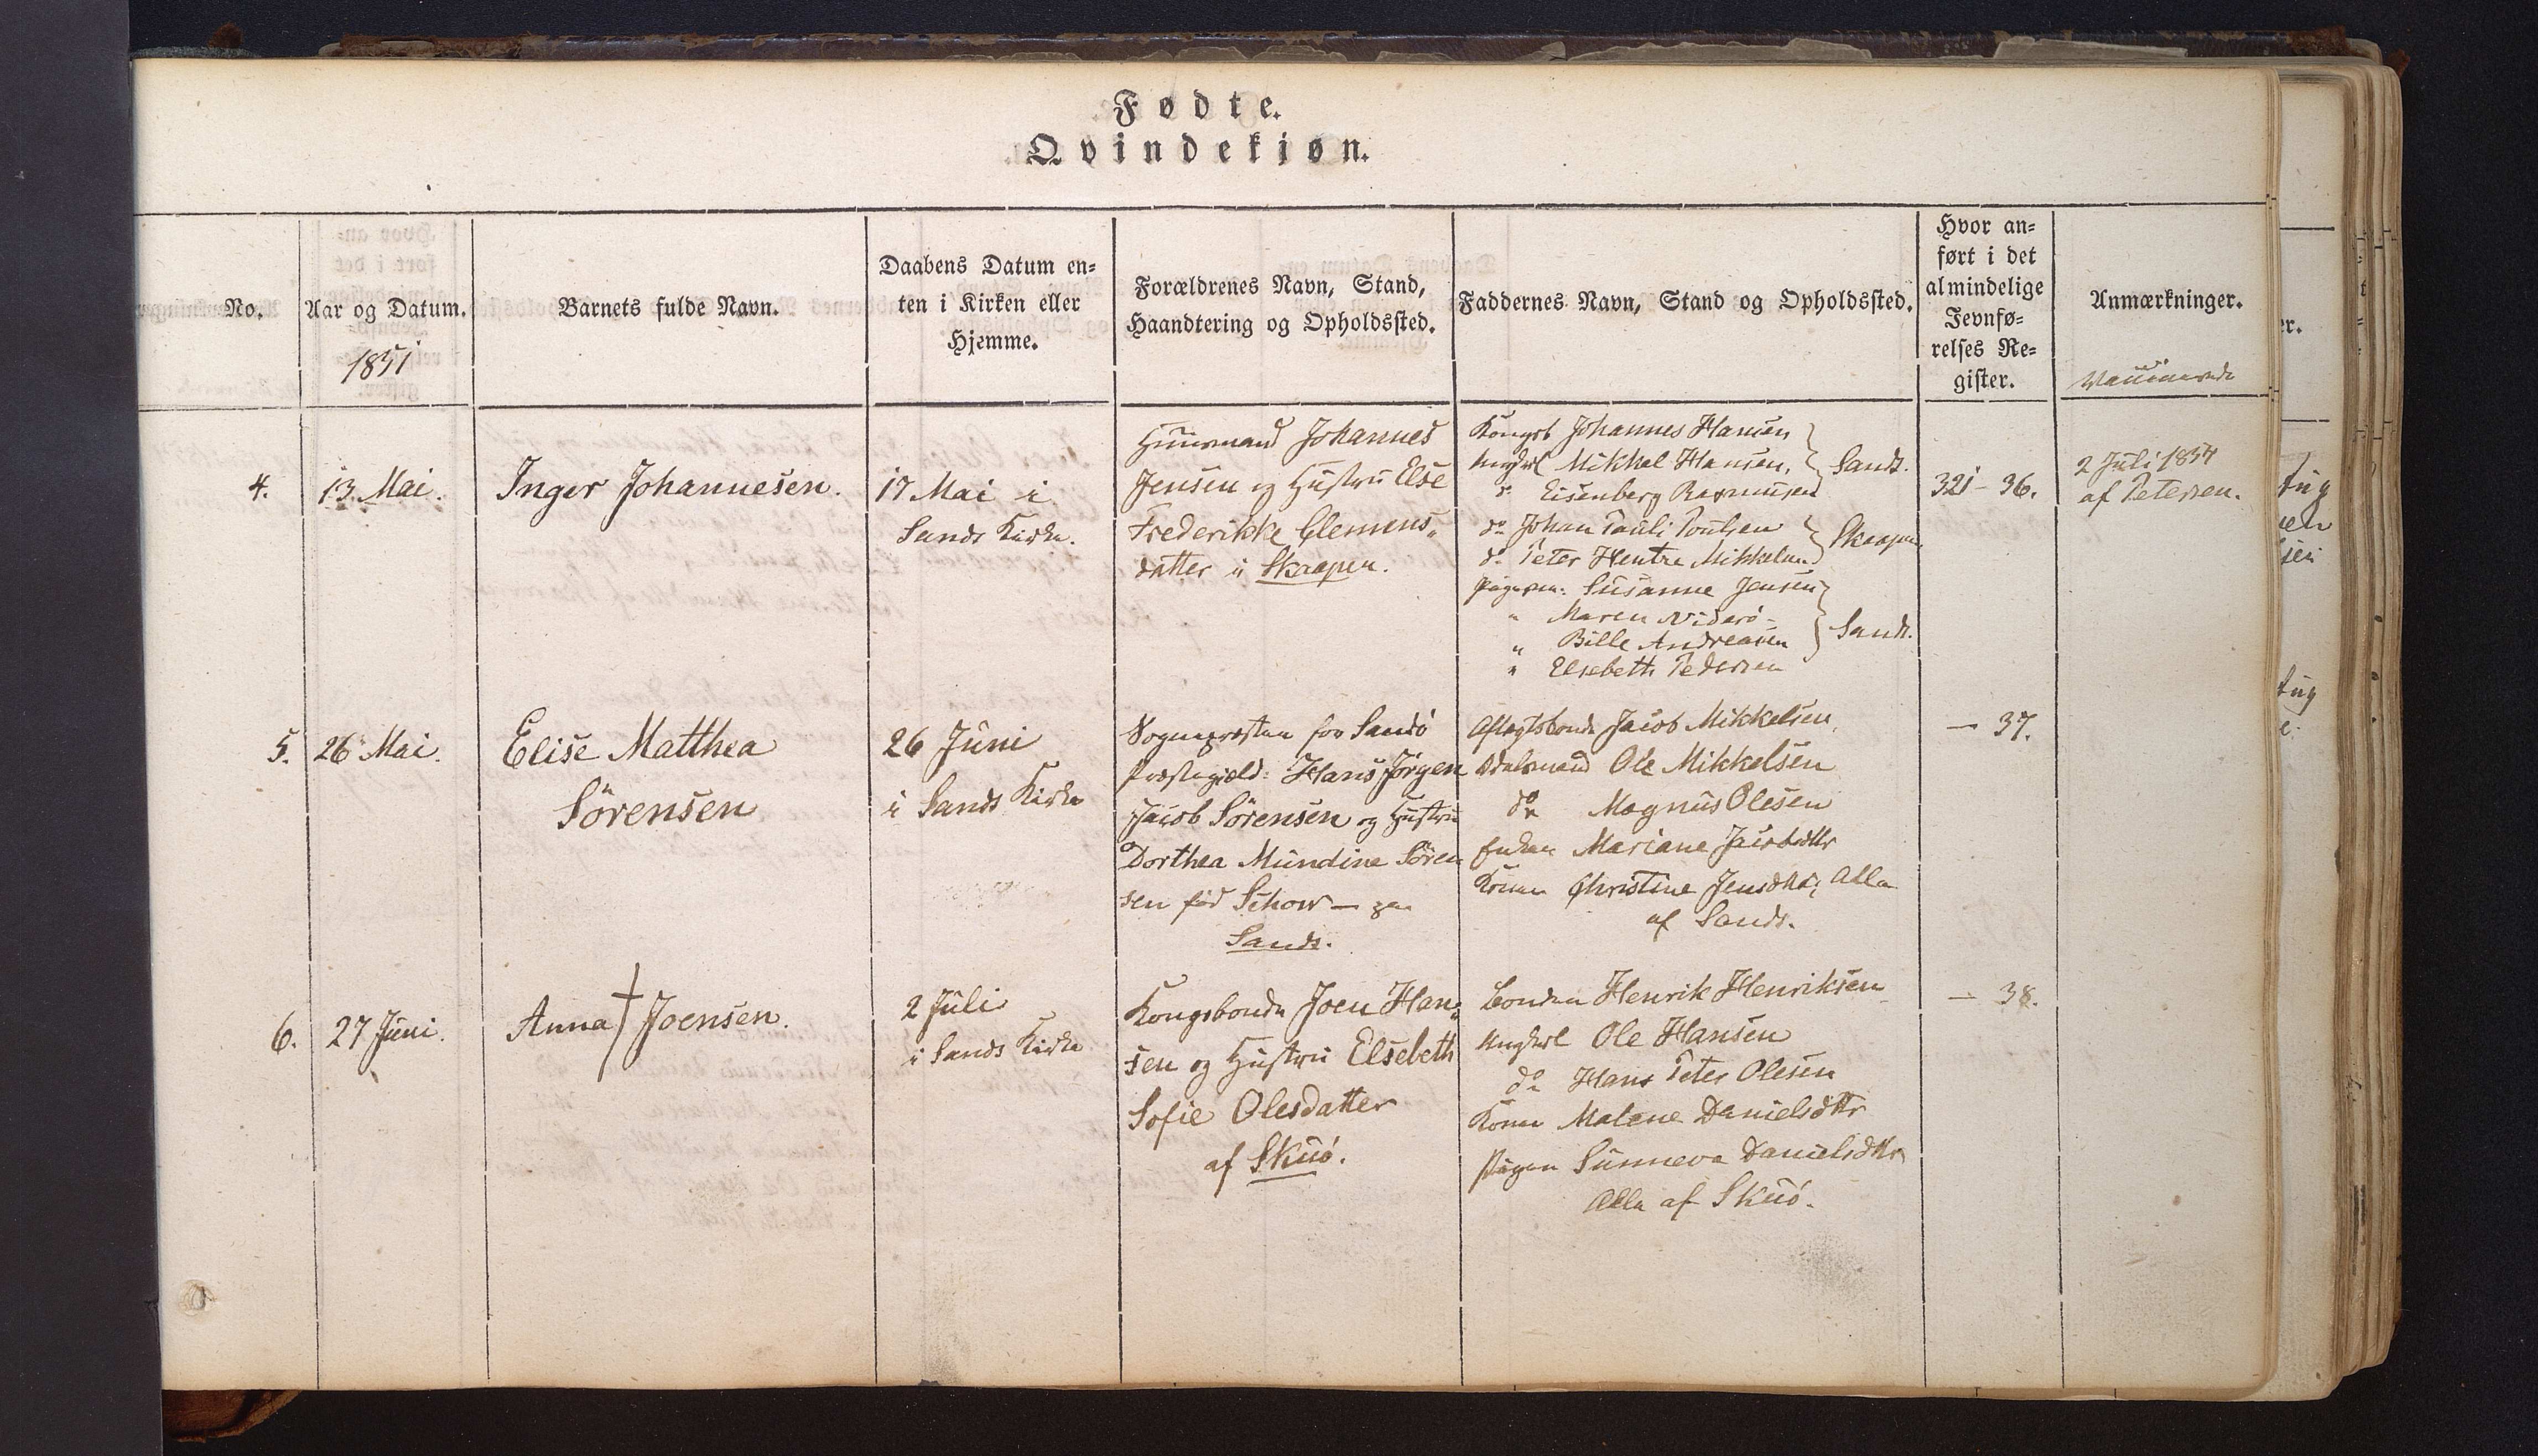 Fødte.
Qvindekjøn.
No.
Aar og Datum.
1851
Barnets fulde Navn.
Daabens Datum en=
ten i Kirken eller
Hjemme.
Forældrenes Navn, Stand,
Haandtering og Opholdssted.
Faddernes Navn, Stand og Opholdssted.
Hvor an=
ført i det
almindelige
Jevnfø=
relses Re=
gister.
Anmærkninger.
Vaccinerede
4.
13. Mai.
Inger Johannesen.
17 Mai i
Sands Kirke.
Huusmand Johannes
Jensen og Hustru Else
Frederikke Clemens„
datter i Skaapen.
Kongsb Johannes Hansen
Ungkrl Mikkel Hansen,
do Eisenberg Rasmusen
Sands.
do Johan Pauli Poulsen
do Peter Hentze Mikkelsen
Skaapen
Pigerne: Susanne Jensen
" Maren Niderö
" Bille Andreasen
" Elsebeth Pedersen
Sands.
321 - 36.
2 Juli 1854
af Petersen.
5.
26 Mai.
Elise Matthea
Sörensen
26 Juni
i Sands Kirke
Sognepræsten for Sandö
Præstegjeld: Hans Jörgen
Jacob Sörensen og Hustru
Dorthea Mundine Sören
sen föd Schow — paa
Sands.
Aftægtsbonde Jacob Mikkelsen
Odelsmand Ole Mikkelsen
do Magnus Olesen
Enken Mariane Jacobsdttr
Konen Christine Jensdttr; Alle
af Sands.
— 37.
6.
27 Juni.
Anna † Joensen.
2 Juli
i Sands Kirke
Kongsbonde Joen Han=
sen og Hustru Elsebeth
Sofie Olesdatter
af Skuö.
Bonden Henrik Henriksen
Ungkrl Ole Hansen
do Hans Peter Olesen
Konen Malene Danielsdttr
Pigen Sunneva Danielsdttr
Alle af Skuö.
— 38.